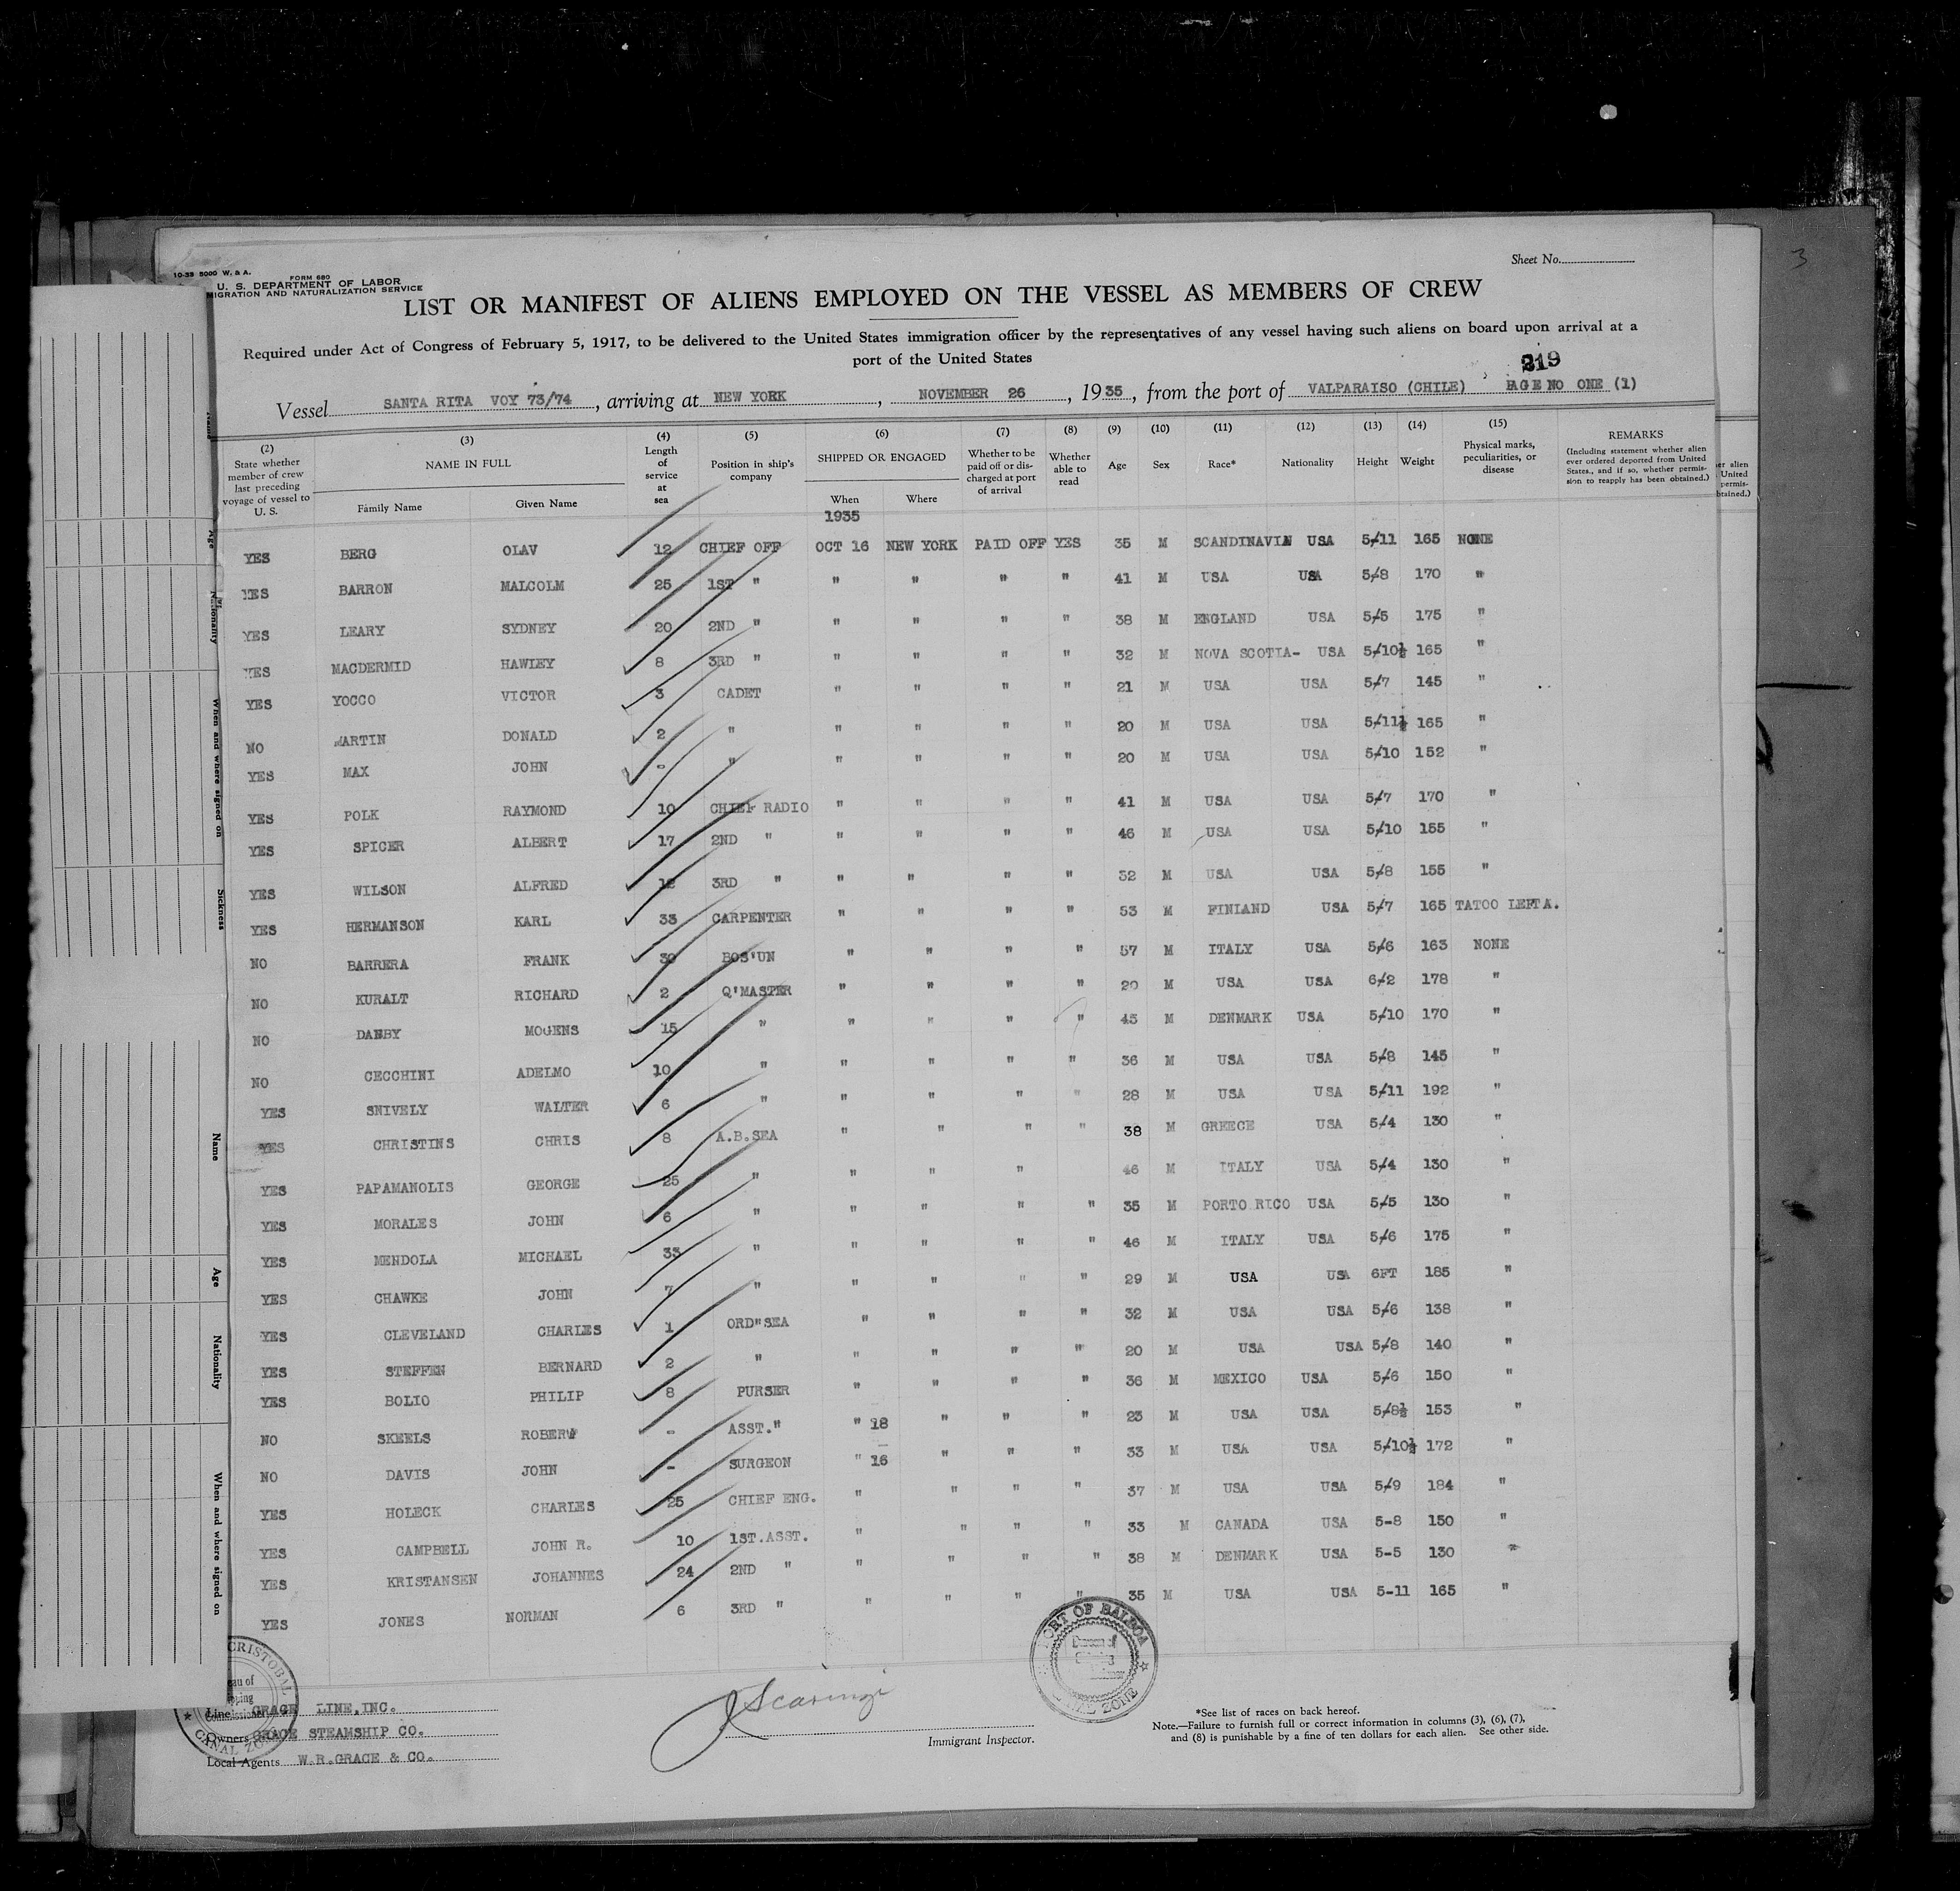 10-33 5000 W. & A.
FORM 680
U. S. DEPARTMENT OF LABOR
MIGRATION AND NATURALIZATION SERVICE
Sheet No.
LIST OR MANIFEST OF ALIENS EMPLOYED ON THE VESSEL AS MEMBERS OF CREW
Required under Act of Congress of February 5, 1917, to be delivered to the United States immigration officer by the representatives of any vessel having such aliens on board upon arrival at a
port of the United States
319
Vessel SANTA RITA VOY 73/74, arriving at NEW YORK, NOVEMBER 26, 1935, from the port of VALPARAISO (CHILE) PAGE NO ONE (1)
(2) State whether member of crew last preceding voyage of vessel to U. S.
(3) NAME IN FULL
Family Name Given Name
(4) Length of service at sea
(5) Position in ship's company
(6) SHIPPED OR ENGAGED
When Where
(7) Whether to be paid off or discharged at port of arrival
(8) Whether able to read
(9) Age
(10) Sex
(11) Race*
(12) Nationality
(13) Height
(14) Weight
(15) Physical marks, peculiarities, or disease
REMARKS
(Including statement whether alien ever ordered deported from United States, and if so, whether permission to reapply has been obtained.)
1935
YES BERG OLAV 12 CHIEF OFF OCT 16 NEW YORK PAID OFF YES 35 M SCANDINAVIN USA 5/11 165 NONE
YES BARRON MALCOLM 25 1ST " " " " " 41 M USA USA 5/8 170 "
YES LEARY SYDNEY 20 2ND " " " " " 38 M ENGLAND USA 5/5 175 "
YES MACDERMID HAWLEY 8 3RD " " " " " 32 M NOVA SCOTIA- USA 5/10½ 165 "
YES YOCCO VICTOR 3 CADET " " " " 21 M USA USA 5/7 145 "
NO MARTIN DONALD 2 " " " " " 20 M USA USA 5/11½ 165 "
YES MAX JOHN - " " " " " 20 M USA USA 5/10 152 "
YES POLK RAYMOND 10 CHIEF RADIO " " " " 41 M USA USA 5/7 170 "
YES SPICER ALBERT 17 2ND " " " " " 46 M USA USA 5/10 155 "
YES WILSON ALFRED 12 3RD " " " " " 32 M USA USA 5/8 155 "
YES HERMANSON KARL 33 CARPENTER " " " " 53 M FINLAND USA 5/7 165 TATOO LEFT A.
NO BARRERA FRANK 30 BOS'UN " " " " 57 M ITALY USA 5/6 163 NONE
NO KURALT RICHARD 2 Q'MASTER " " " " 20 M USA USA 6/2 178 "
NO DANBY MOGENS 15 " " " " " 45 M DENMARK USA 5/10 170 "
NO CECCHINI ADELMO 10 " " " " " 36 M USA USA 5/8 145 "
YES SNIVELY WALTER 6 " " " " " 28 M USA USA 5/11 192 "
YES CHRISTINS CHRIS 8 A.B.SEA " " " " 38 M GREECE USA 5/4 130 "
YES PAPAMANOLIS GEORGE 25 " " " " 46 M ITALY USA 5/4 130 "
YES MORALES JOHN 6 " " " " " 35 M PORTO RICO USA 5/5 130 "
YES MENDOLA MICHAEL 33 " " " " " 46 M ITALY USA 5/6 175 "
YES CHAWKE JOHN 7 " " " " " 29 M USA USA 6FT 185 "
YES CLEVELAND CHARLES 1 ORD"SEA " " " " 32 M USA USA 5/6 138 "
YES STEFFEN BERNARD 2 " " " " " 20 M USA USA 5/8 140 "
YES BOLIO PHILIP 8 PURSER " " " " 36 M MEXICO USA 5/6 150 "
NO SKEELS ROBERT - ASST." " 18 " " " 23 M USA USA 5/8½ 153 "
NO DAVIS JOHN - SURGEON " 16 " " " 33 M USA USA 5/10½ 172 "
YES HOLECK CHARLES 25 CHIEF ENG. " " " " 37 M USA USA 5/9 184 "
YES CAMPBELL JOHN R. 10 1ST.ASST. " " " " 33 M CANADA USA 5-8 150 "
YES KRISTANSEN JOHANNES 24 2ND " " " " " 38 M DENMARK USA 5-5 130 "
YES JONES NORMAN 6 3RD " " " " " 35 M USA USA 5-11 165 "
CRISTOBAL
CANAL ZONE
PORT OF BALBOA
Line GRACE LINE,INC.
Owners GRACE STEAMSHIP CO.
Local Agents W.R.GRACE & CO.
J Scaringi
Immigrant Inspector.
*See list of races on back hereof.
Note.—Failure to furnish full or correct information in columns (3), (6), (7),
and (8) is punishable by a fine of ten dollars for each alien. See other side.
Age
Nationality
When and where signed on
Sickness
Name
Age
Nationality
When and where signed on
er alien
United
permis-
btained.)
3